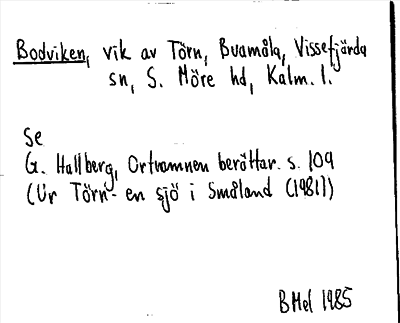 Bodviken, vik av Törn, Buamåla, Vissefjärda
sn, S. Möre hd, Kalm. l.
Se
G. Hallberg, Ortnamnen berättar. s. 109
(Ur Törn - en sjö i Småland (1981))
BHel 1985